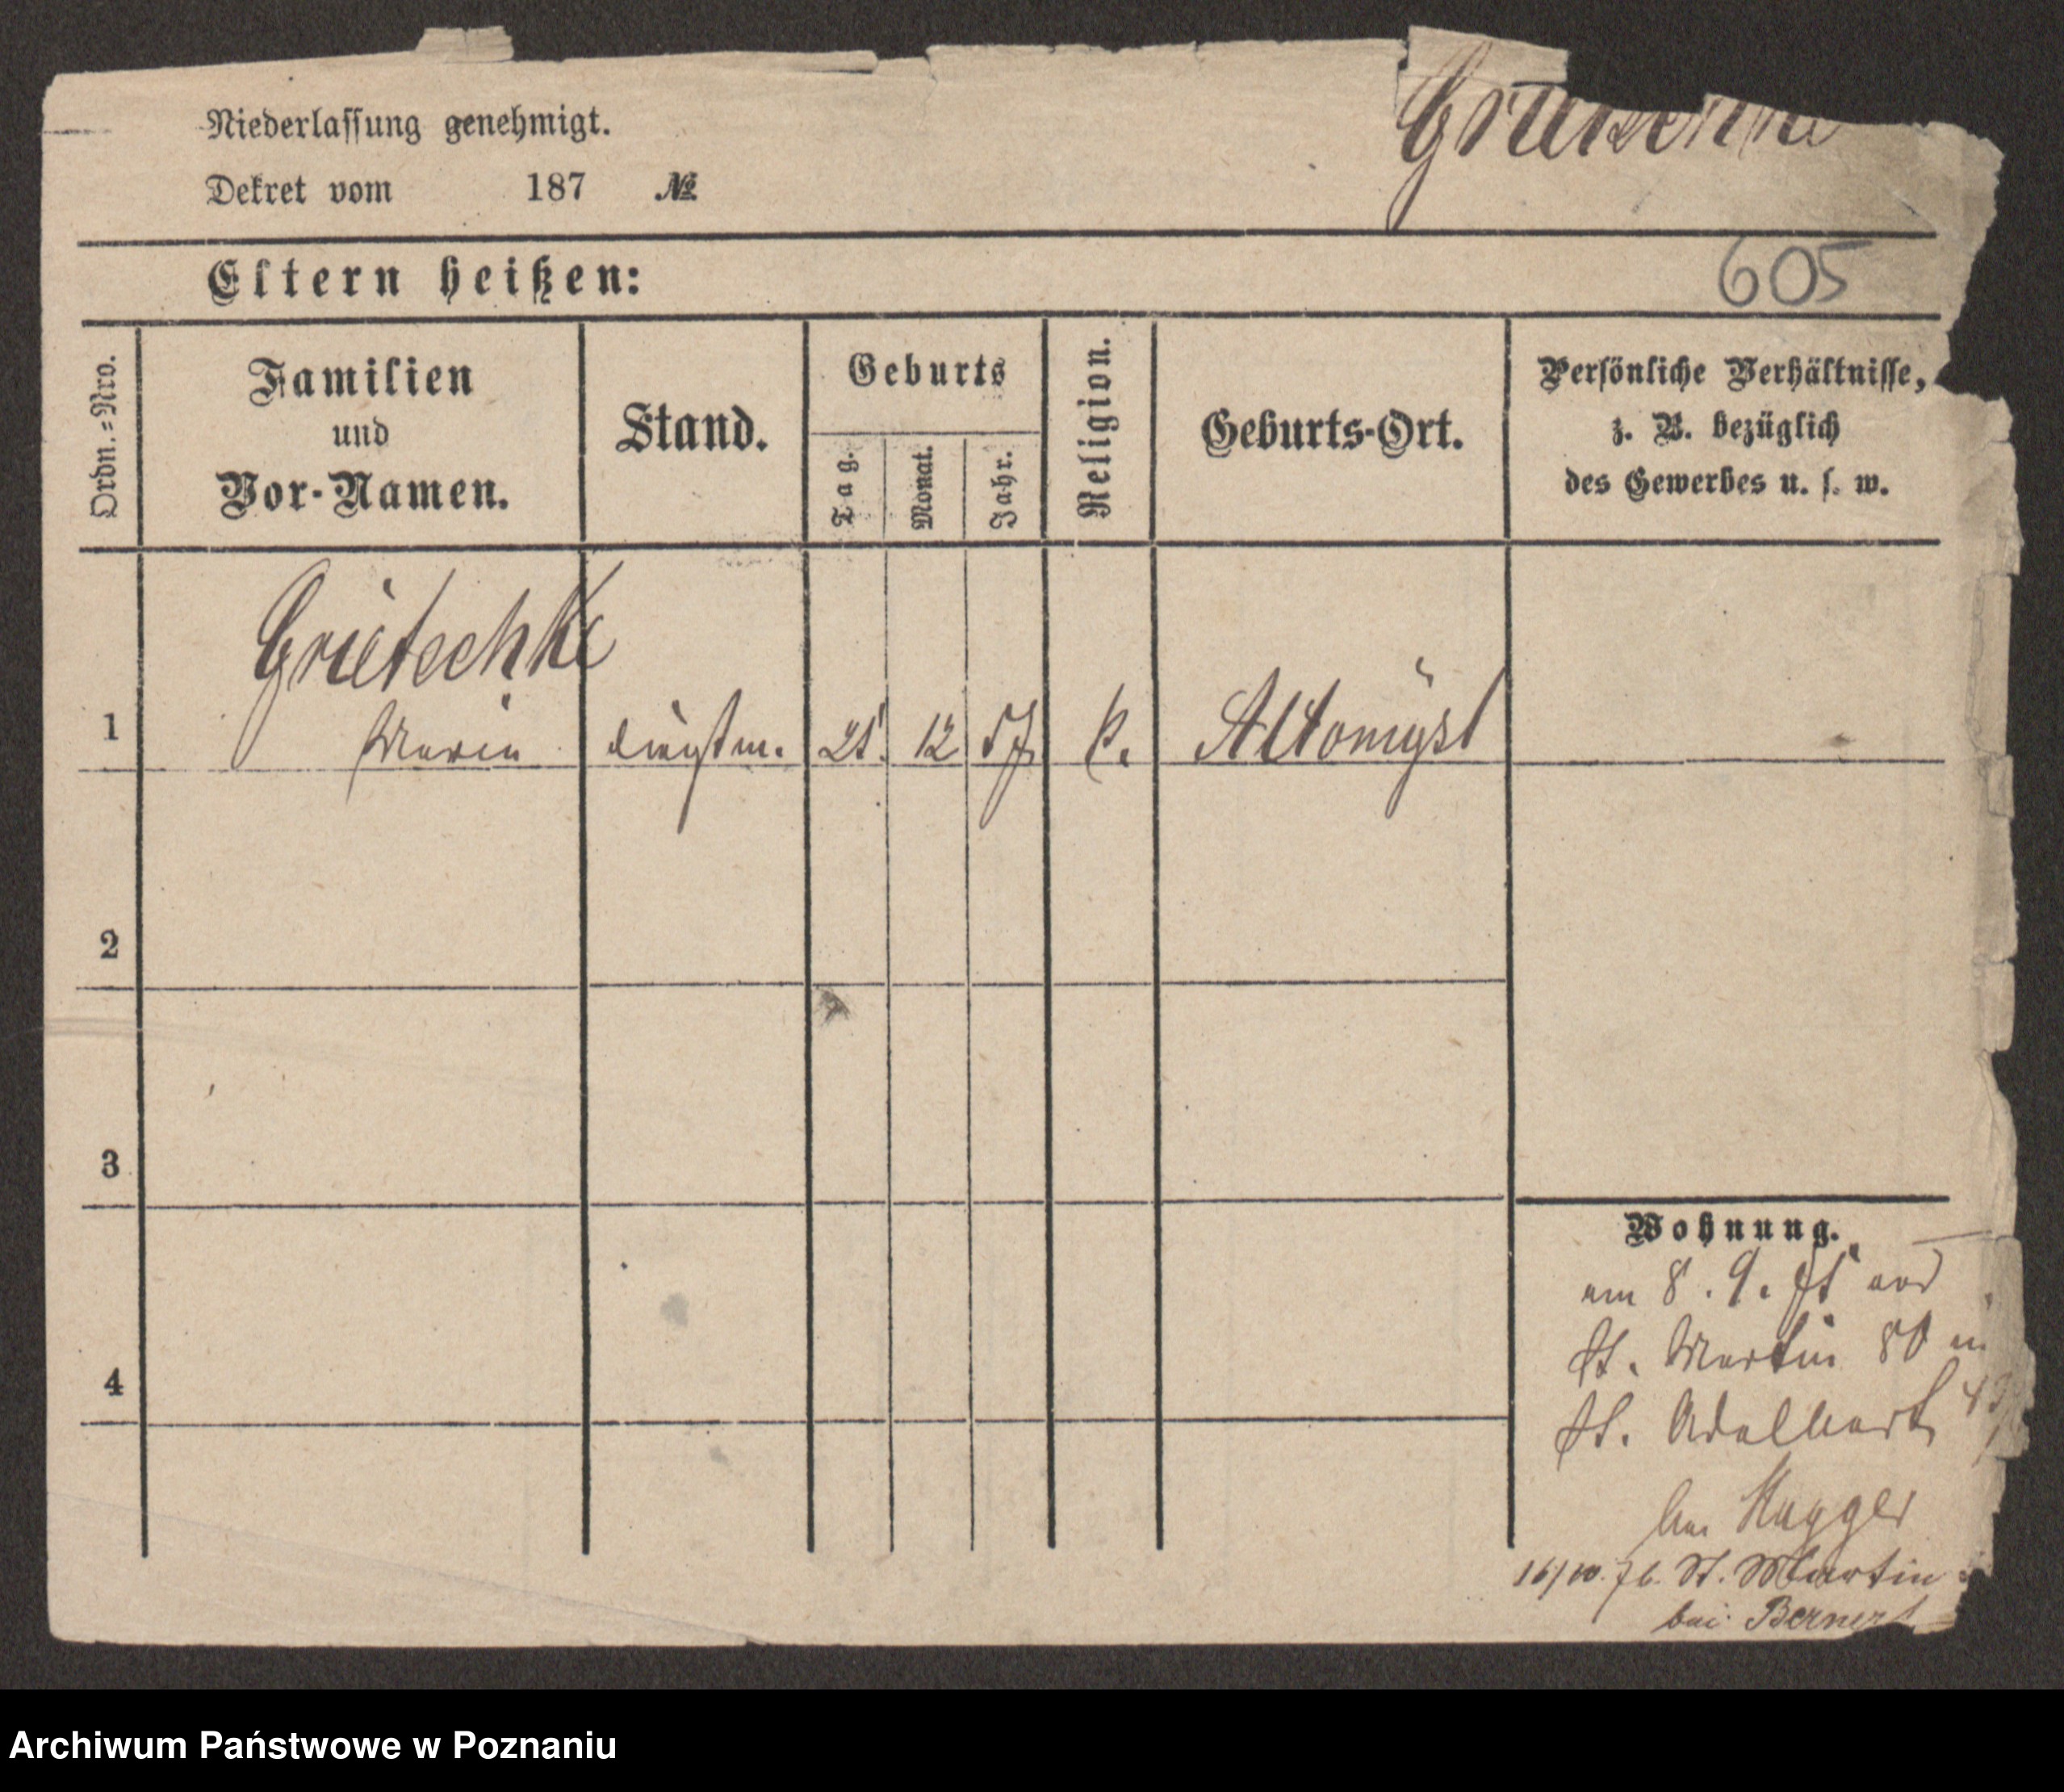 Niederlassung genehmigt.
Dekret vom 187 №
Eltern heißen:
605
Ordn.-Nro.
Familien
und
Vor-Namen.
Stand.
Geburts
Tag.
Monat.
Jahr.
Religion.
Geburts-Ort.
Persönliche Verhältnisse,
z. B. bezüglich
des Gewerbes u. s. w.
Grietschke
1 Marie 12 57 k. Altomysl
2
3
4
Wohnung.
am 8. 9.
St. Martin 80 in
St. Adalbert
bei
16/10. 76. St. Martin
bei Bernert
Archiwum Państwowe w Poznaniu